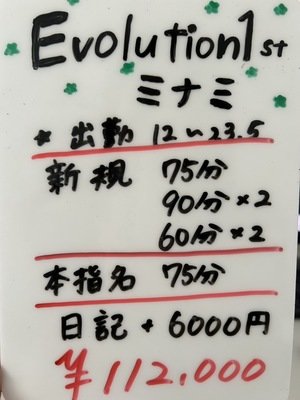 Evolution1st
ミナミ
* 出勤 12〜23.5
新規 75分
90分×2
60分×2
本指名 75分
日記 + 6000円
¥112.000